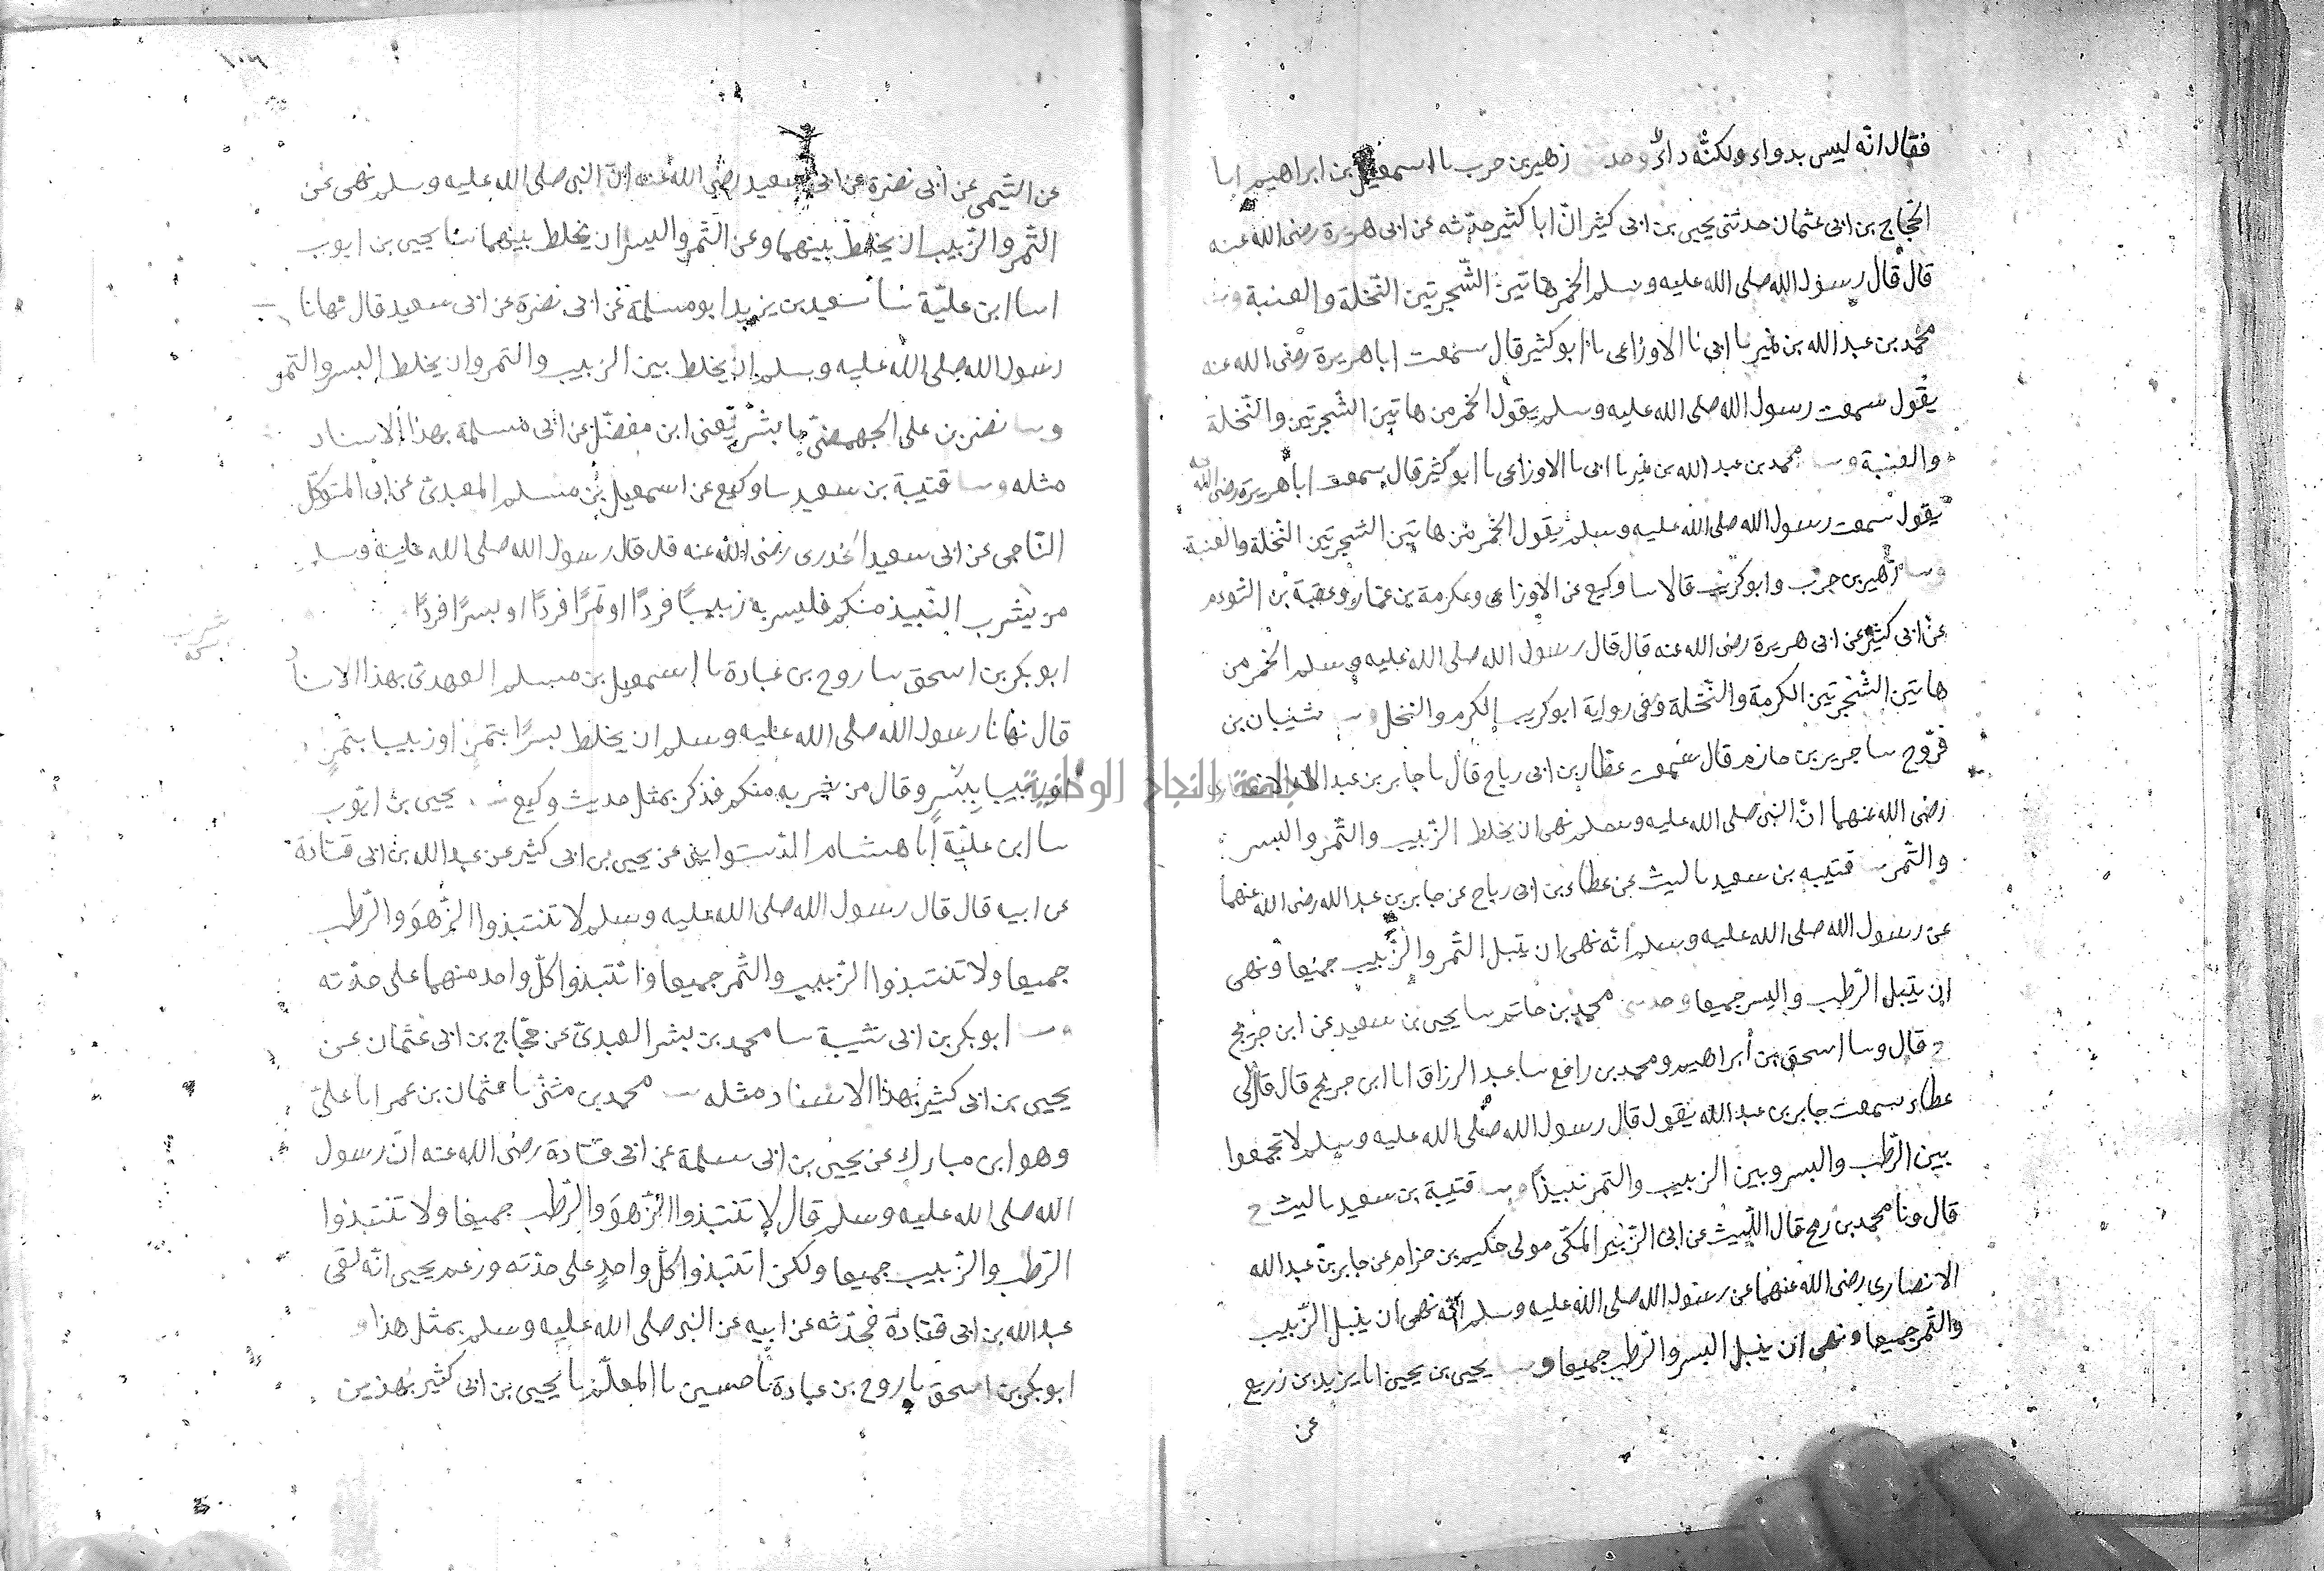 فقال انه ليس بدواء ولكنه داء وحدثني زهير بن حرب نا اسمعيل بن ابراهيم انا
الحجاج بن ابى عثمان حدثنى يحيى بن ابى كثير انّ ابا كثير حدّثه عن ابى هريرة رضى الله عنه
قال قال رسول الله صلى الله عليه وسلم الخمر هاتين الشّجرتين النّخلة والعنبة
محمد بن عبد الله بن نمير نا ابى نا الاوزاعى نا ابو كثير قال سمعت ابا هريرة رضى الله عنه
يقول سمعت رسول الله صلى الله عليه وسلم يقول الخمر من هاتين الشّجرتين والنّخلة
والعنبة وسا محمد بن عبد الله بن نمير نا ابى نا الاوزاعى نا ابو كثير قال سمعت ابا هريرة رضى الله عنه
يقول سمعت رسول الله صلى الله عليه وسلم يقول الخمر من هاتين الشجرتين النّخلة والعنبة
وسا زهير بن حرب وابو كريب قالا سا وكيع عن الاوزاعى وعكرمة بن عمار وعقبة بن التودم
عن ابى كثير عن ابى هريرة رضى الله عنه قال قال رسول الله صلى الله عليه وسلم الخمر من
هاتين الشّجرتين الكرمة والنّخلة وفى رواية ابو كريب الكرم والنخل شيبان بن
فرّوخ سا جرير بن حازم قال سمعت عطاء بن ابى رباح قال نا جابر بن عبد الله الانصارى
رضى الله عنهما انّ النبى صلى الله عليه وسلم نهى ان يخلط الزّبيب والتّمر والبسر
والتّمر قتيبه بن سعيد نا ليث عن عطاء بن ابى رباح عن جابر بن عبد الله رضى الله عنهما
عن رسول الله صلى الله عليه وسلم انّه نهى ان ينبذ التّمر والزّبيب جميعا ونهى
ان ينبذ الرّطب والبسر جميعا وحدثنى محمد بن حاتم سا يحيى بن سعيد عن ابن جريج
ح قال وسا اسحق بن ابراهيم ومحمد بن رافع سا عبد الرزاق انا ابن جريج قال قال لى
عطاء سمعت جابر بن عبد الله يقول قال رسول الله صلى الله عليه وسلم لا تجمعوا
بين الرّطب والبسر وبين الزبيب والتمر نبيذا وسا قتيبة بن سعيد نا ليث ح
قال ونا محمد بن رمح قال اللّيث عن ابى الزّبير المكّى مولى حكيم بن حزام عن جابر بن عبد الله
الانصارى رضى الله عنهما عن رسول الله صلى الله عليه وسلم انّه نهى ان ينبذ الزّبيب
والتّمر جميعا ونهى ان ينبذ البسر والرّطب جميعا وسا يحيى بن يحيى انا يزيد بن زريع
عن
عن التّيمى عن ابى نضرة عن ابى سعيد رضى الله عنه انّ النبى صلى الله عليه وسلم نهى عن
التّمر والزّبيب ان يخلط بينهما وعن التّمر والبسر ان يخلط بينهما سا يحيى بن ايوب
سا ابن عليّة سا سعيد بن يزيد ابو مسلمة عن ابى نضرة عن ابى سعيد قال نهانا
رسول الله صلى الله عليه وسلم ان يخلط بين الزبيب والتمر وان يخلط البسر والتمر
وسا نصر بن على الجهضمىّ نا بشر يعنى ابن مفضّل عن ابى مسلمة بهذا الاسناد
مثله وسا قتيبة بن سعيد سا وكيع عن اسمعيل بن مسلم العبدىّ عن ابى المتوكّل
النّاجى عن ابى سعيد الخدرى رضى الله عنه قال قال رسول الله صلى الله عليه وسلم
من يشرب النّبيذ منكم فليسربه زبيبًا فردًا او تمرًا فردًا او بسرًا فردًا
ابو بكر بن اسحق سا روح بن عبادة نا اسمعيل بن مسلم العبدىّ بهذا الاسنا
قال نهانا رسول الله صلى الله عليه وسلم ان يخلط بسرًا بتمرٍ او زبيبا بتمرٍ
او زبيبا ببسرٍ وقال من شربه منكم فذكر بمثل حديث وكيع يحيى بن ايّوب
سا ابن عليّة انا هشام الدّستوايى عن يحيى بن ابى كثير عن عبد الله بن ابى قتادة
عن ابيه قال قال رسول الله صلى الله عليه وسلم لا تنتبذوا الزّهو والرّطب
جميعا ولا تنتبذوا الزّبيب والتّمر جميعا وانتبذوا كلّ واحد منهما على حدّته
ابو بكر بن ابى شيبة سا محمد بن بشر العبدىّ عن حجّاج بن ابى عثمان عن
يحيى بن ابى كثير بهذا الاسناد مثله محمد بن مثنى نا عثمان بن عمر انا علىّ
وهو ابن مبارك عن يحيى بن ابى سلمة عن ابى قتادة رضى الله عنه انّ رسول
الله صلى الله عليه وسلم قال لا تنتبذوا الزّهوَ والرّطب جميعا ولا تنتبذوا
الرّطب والزّبيب جميعا ولكن انتبذوا كلّ واحدٍ على حدّته وزعم يحيى انّه لقى
عبد الله بن ابى قتادة فحدّثه عن ابيه عن النبى صلى الله عليه وسلم بمثل هذا
ابو بكر بن اسحق نا روح بن عبادة نا حسين نا المعلّم نا يحيى بن ابى كثير بهذين
جامعة النجاح الوطنية